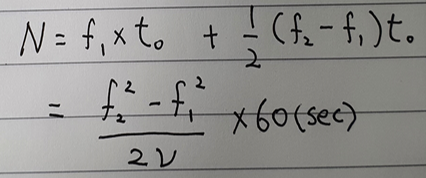 N = f₁ × t₀ + 1/2 (f₂ - f₁) t₀
= (f₂² - f₁²)/(2ν) × 60 (sec)